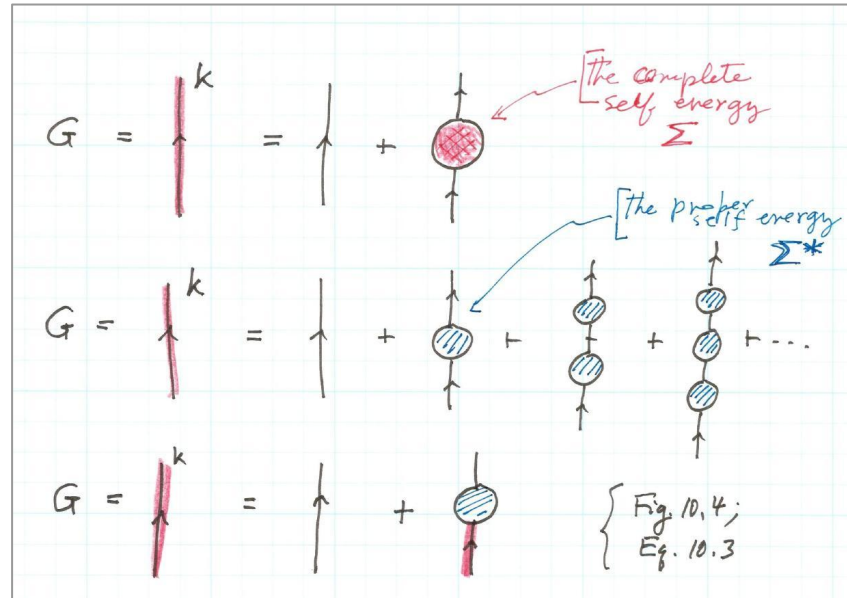 G = k = + [The complete
self energy
Σ
[the proper
self energy
Σ*
G = k = + + + + ...
G = k = +
{ Fig. 10.4;
Eq. 10.3